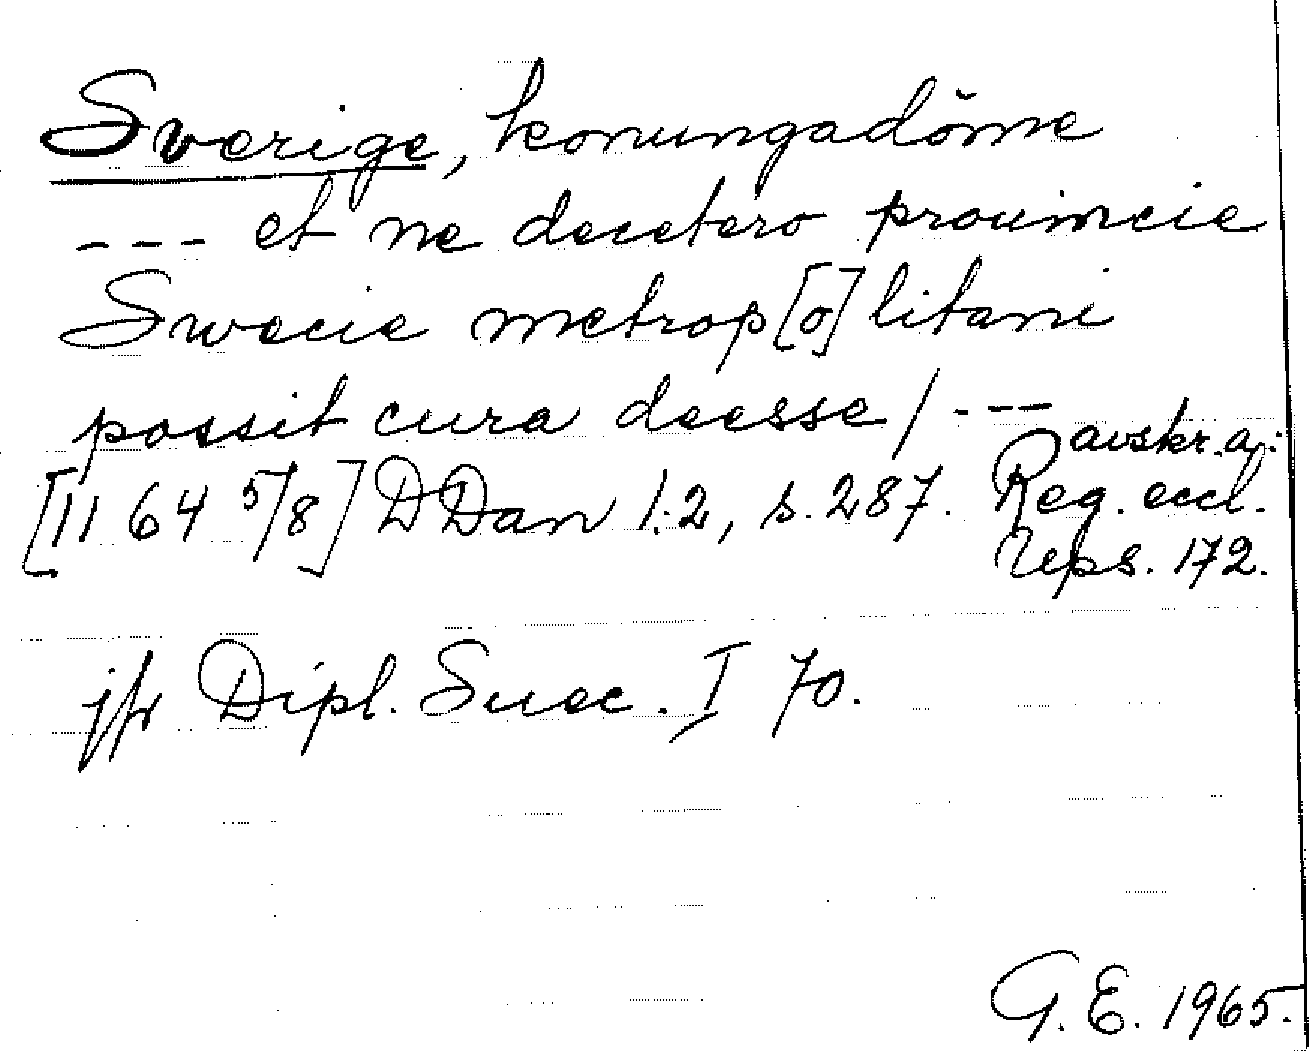 Sverige, konungadöme
--- et ne decetero prouincie
Swecie metrop[o]litani
possit cura deesse / ---
avskr. a.:
[1164 5/8] DDan 1:2, s. 287. Reg. eccl.
Ups. 172.
jfr Dipl. Suec. I 70.
G. E. 1965.